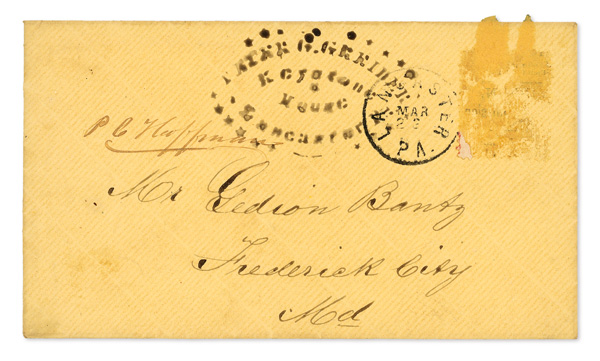 PETER G.
Keystone
House
Lancaster
LANCASTER
MAR
PA.
P C Hoffman
Mr Gedion Bantz
Frederick City
Md